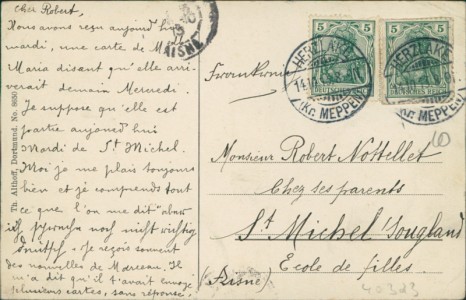 Cher Robert,
Nous avons reçu aujourd'hui
mardi, une carte de
Maria disant qu'elle arri-
verait demain Mercredi.
Je suppose qu'elle est
partie aujourd'hui
Mardi de St Michel.
Moi je me plais toujours
bien et je comprends tout
ce que l'on me dit aber
ich spreche noch nicht richtig
deutsch. Je reçois souvent
des nouvelles de Marceau. Il
m'a dit qu'il t'avait envoyé
plusieurs cartes, sans réponse.
Th. Althoff, Dortmund. No. 8650
AISNE
5 5
5 5
DEUTSCHES REICH
HERZLAKE
(Kr. MEPPEN)
HERZLAKE
(Kr. MEPPEN)
Monsieur Robert Nottellet
Chez ses parents
St Michel Sougland
Ecole de filles.
(Aisne)
10
40323